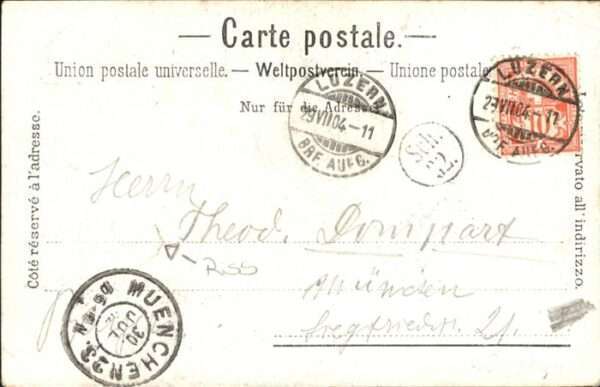 Carte postale.
Union postale universelle. — Weltpostverein. — Unione postale
Nur für die Adresse
LUZERN
29 VII 04 - 11
BRF. AUFG.
LUZERN
29 VII 04 - 11
BRF. AUFG.
10
Côté réservé à l'adresse.
all' indirizzo.
Herrn
Theod. Dompart
München
21.
MUENCHEN 23.
30
JUL